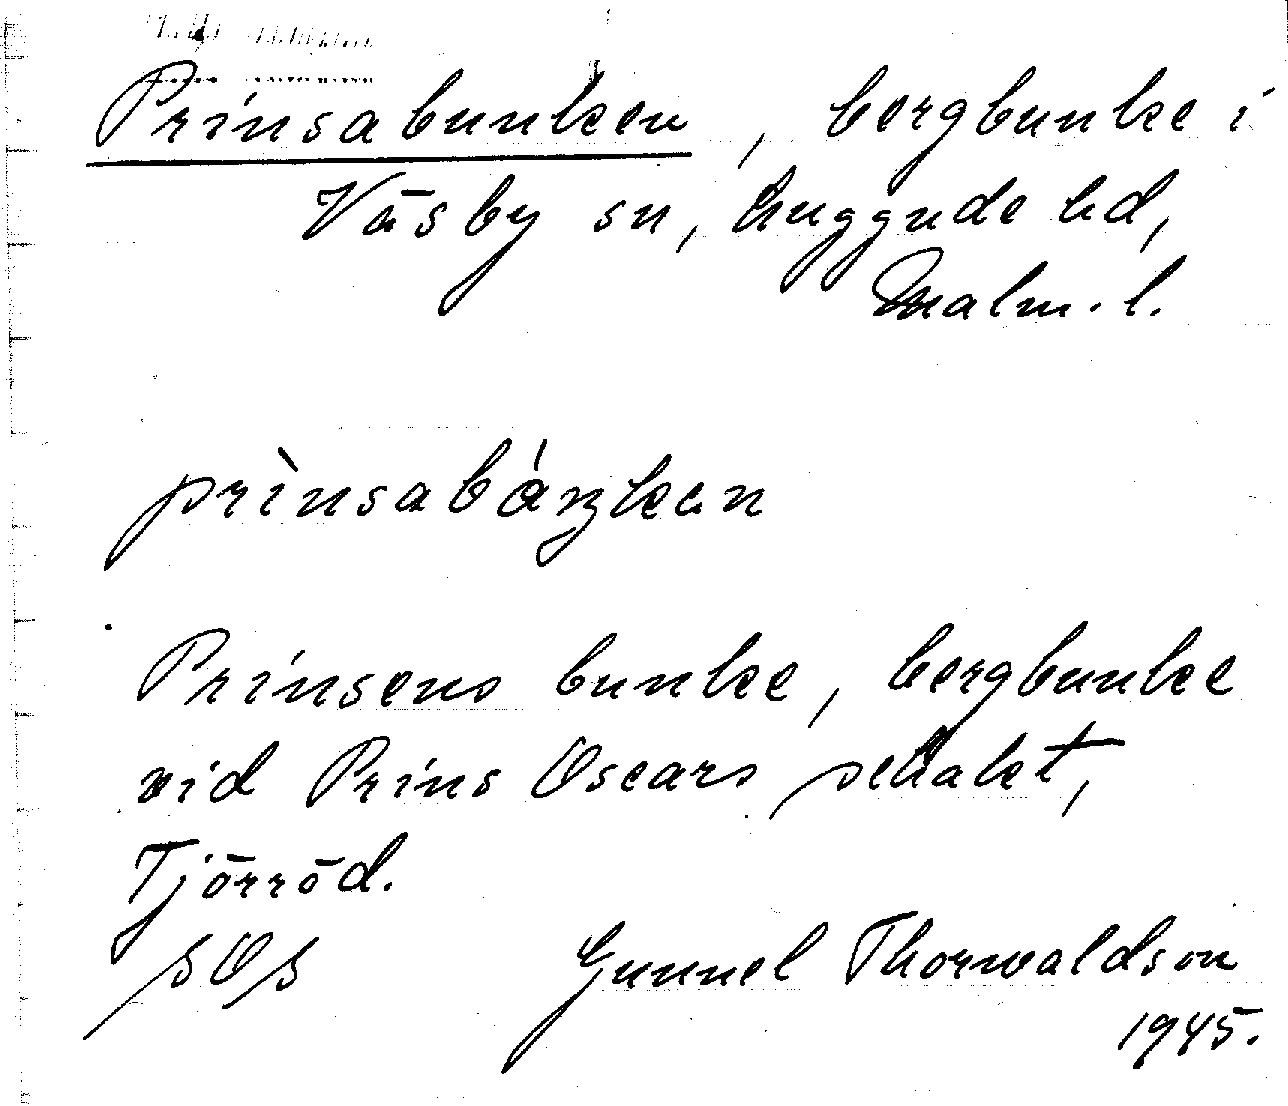 Prinsabunken, bergbunke i
Väsby sn, Luggude hd,
Malm. l.
prìnsabáŋken
Prinsens bunke, bergbunke
vid Prins Oscars schakt,
Tjörröd.
SOS Gunnel Thorwaldson
1945.